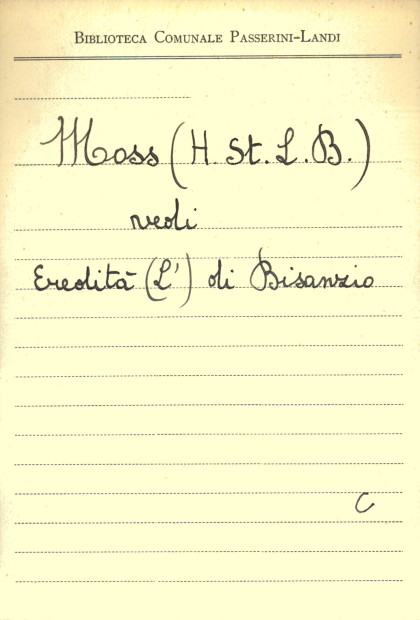 Biblioteca Comunale Passerini-Landi
Moss (H. St. L. B.)
vedi
Eredità (L') di Bisanzio
C